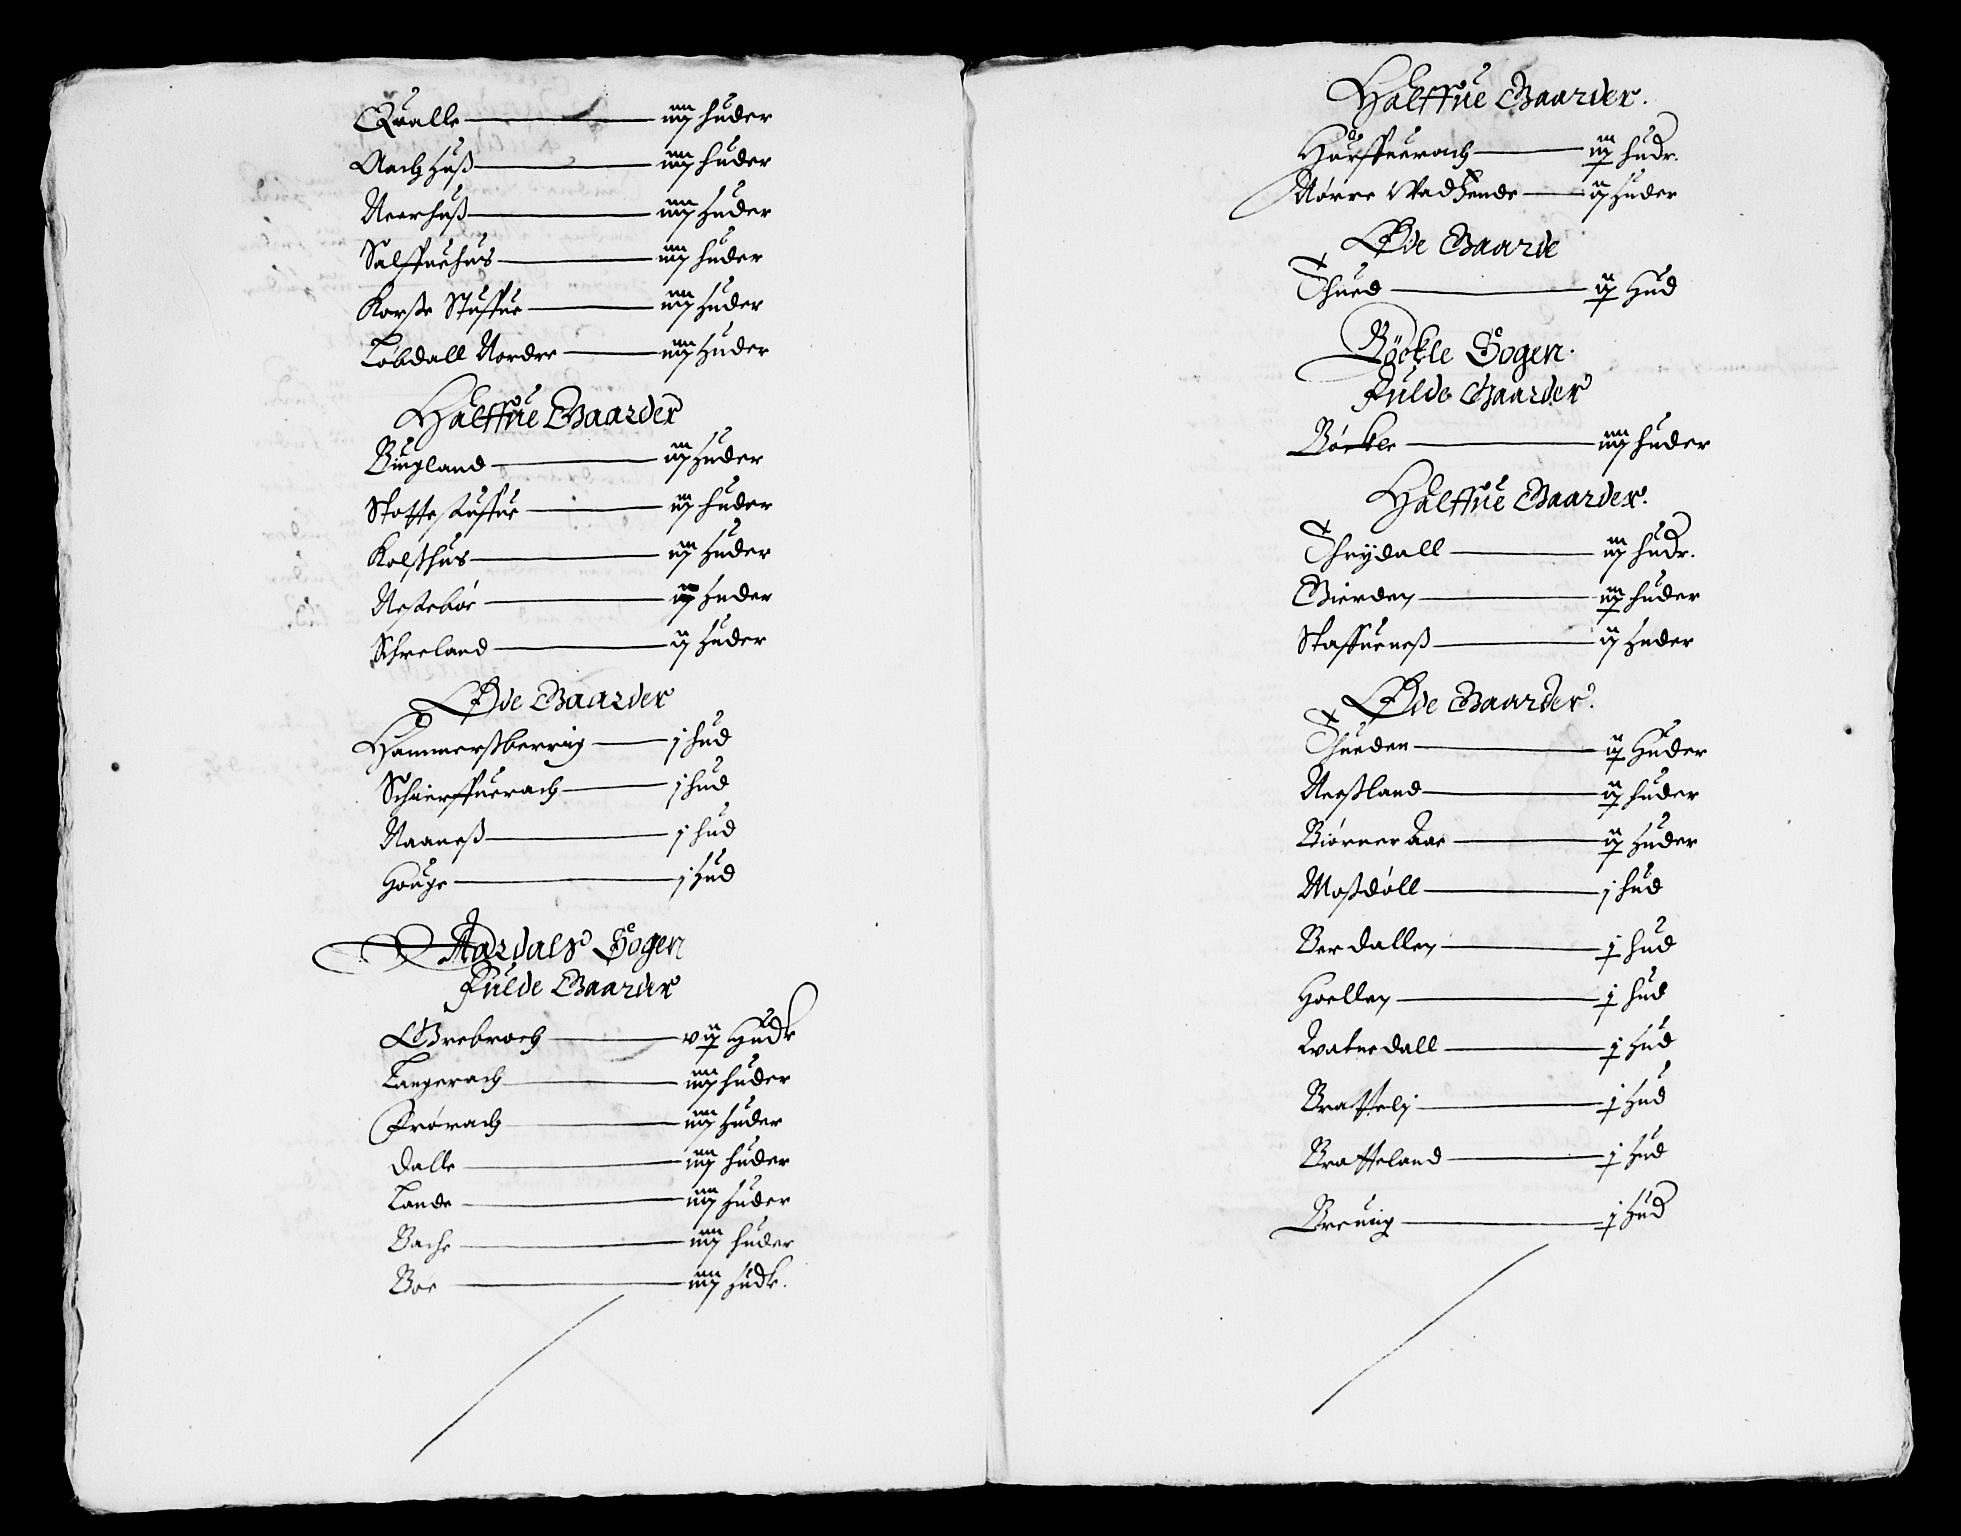 Qualle — iiij huder
Aachhuß — iiij huder
Neerhuß — iiij huder
Salffuehus — iiij huder
Korße Stuffue — iiij huder
Løbdall Nordre — iiij huder
Halffue Gaarder
Biugland — iij huder
Skottestuffue — iij huder
Kolßhus — iij huder
Neskebøe — ij huder
Schreland — ij huder
Øde Gaarder
Hammerßberrig — j hud
Schierffuerach — j hud
Naaneß — j hud
Houge — j hud
Aardals Sogen
Fulde Gaarder
Grebroch — vij hudr
Langerach — iiij huder
Frørach — iiij huder
Dalle — iiij huder
Lande — iiij huder
Bache — iiij huder
Boe — iiij hudr.
Halffue Gaarder.
Harffuerach — iij hudr.
Nørre Wadhende — ij huder
Øde Gaarde
Thued — ij hud
Böckle Sogen.
Fulde Gaarder
Böckle — iiij huder
Halffue Gaarder.
Thrydall — iij hudr.
Gierden — iij huder
Staffueneß — ij huder
Øde Gaarder.
Thueden — ij huder
Neeßland — ij huder
Biørner Aae — ij huder
Moßdøll — j hud
Berdallen — j hud
Hoellen — j hud
Watnedall — j hud
Brattelj — j hud
Bratteland — j hud
Breuiig — j hud